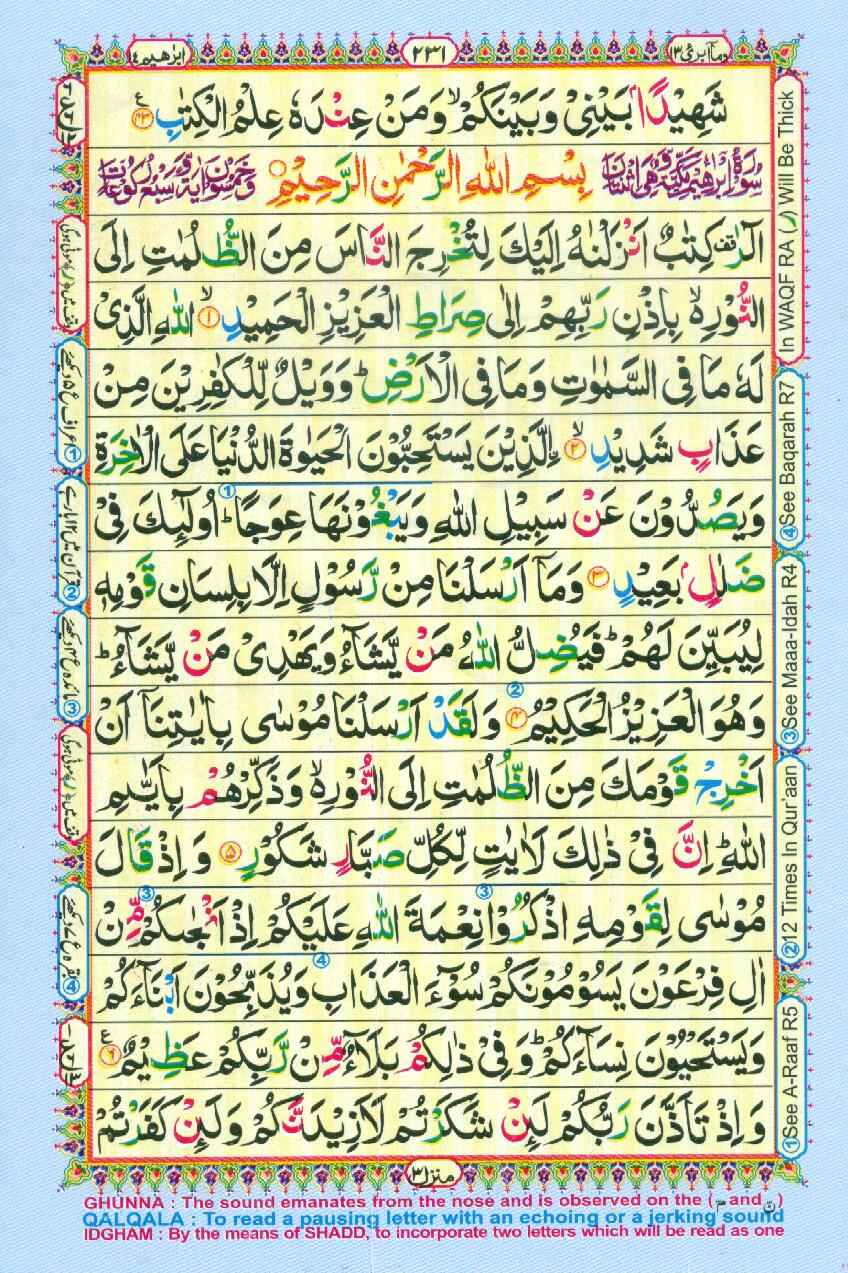 ابرٰهیم ۱۴
۲۳۱
وما ابرئ ۱۳
شَهِيْدًاۢ بَيْنِيْ وَبَيْنَكُمْ ۙ وَمَنْ عِنْدَهٗ عِلْمُ الْكِتٰبِ ۴۳ ع
سُوْرَةُ اِبْرٰهِيْمَ مَكِّيَّةٌ وَّهِيَ اثْنَتَانِ بِسْمِ اللهِ الرَّحْمٰنِ الرَّحِيْمِ وَخَمْسُوْنَ اٰيَةً وَّسَبْعُ رُكُوْعَاتٍ
الٓرٰ ۫ كِتٰبٌ اَنْزَلْنٰهُ اِلَيْكَ لِتُخْرِجَ النَّاسَ مِنَ الظُّلُمٰتِ اِلَى
النُّوْرِ ۙ۬ بِاِذْنِ رَبِّهِمْ اِلٰى صِرَاطِ الْعَزِيْزِ الْحَمِيْدِ ۙ ۱ اللهِ الَّذِيْ
لَهٗ مَا فِي السَّمٰوٰتِ وَمَا فِي الْاَرْضِ ؕ وَوَيْلٌ لِّلْكٰفِرِيْنَ مِنْ
عَذَابٍ شَدِيْدِ ۙ ۲ ِۨالَّذِيْنَ يَسْتَحِبُّوْنَ الْحَيٰوةَ الدُّنْيَا عَلَى الْاٰخِرَةِ
وَيَصُدُّوْنَ عَنْ سَبِيْلِ اللهِ وَيَبْغُوْنَهَا عِوَجًا ؕ اُولٰٓئِكَ فِيْ
ضَلٰلٍۢ بَعِيْدٍ ۳ وَمَاۤ اَرْسَلْنَا مِنْ رَّسُوْلٍ اِلَّا بِلِسَانِ قَوْمِهٖ
لِيُبَيِّنَ لَهُمْ ؕ فَيُضِلُّ اللهُ مَنْ يَّشَآءُ وَيَهْدِيْ مَنْ يَّشَآءُ ؕ
وَهُوَ الْعَزِيْزُ الْحَكِيْمُ ۴ وَلَقَدْ اَرْسَلْنَا مُوْسٰى بِاٰيٰتِنَاۤ اَنْ
اَخْرِجْ قَوْمَكَ مِنَ الظُّلُمٰتِ اِلَى النُّوْرِ ۙ۬ وَذَكِّرْهُمْ بِاَيّٰىمِ
اللهِ ؕ اِنَّ فِيْ ذٰلِكَ لَاٰيٰتٍ لِّكُلِّ صَبَّارٍ شَكُوْرٍ ۵ وَاِذْ قَالَ
مُوْسٰى لِقَوْمِهِ اذْكُرُوْا نِعْمَةَ اللهِ عَلَيْكُمْ اِذْ اَنْجٰىكُمْ مِّنْ
اٰلِ فِرْعَوْنَ يَسُوْمُوْنَكُمْ سُوْٓءَ الْعَذَابِ وَيُذَبِّحُوْنَ اَبْنَآءَكُمْ
وَيَسْتَحْيُوْنَ نِسَآءَكُمْ ؕ وَفِيْ ذٰلِكُمْ بَلَآءٌ مِّنْ رَّبِّكُمْ عَظِيْمٌ ۶ ع
وَاِذْ تَاَذَّنَ رَبُّكُمْ لَئِنْ شَكَرْتُمْ لَاَزِيْدَنَّكُمْ وَلَئِنْ كَفَرْتُمْ
منزل ۳
In WAQF RA (ر) Will Be Thick
④See Baqarah R7
③See Maaa-Idah R4
②12 Times In Qur'aan
①See A-Raaf R5
GHUNNA : The sound emanates from the nose and is observed on the (نّ and مّ)
QALQALA : To read a pausing letter with an echoing or a jerking sound
IDGHAM : By the means of SHADD, to incorporate two letters which will be read as one